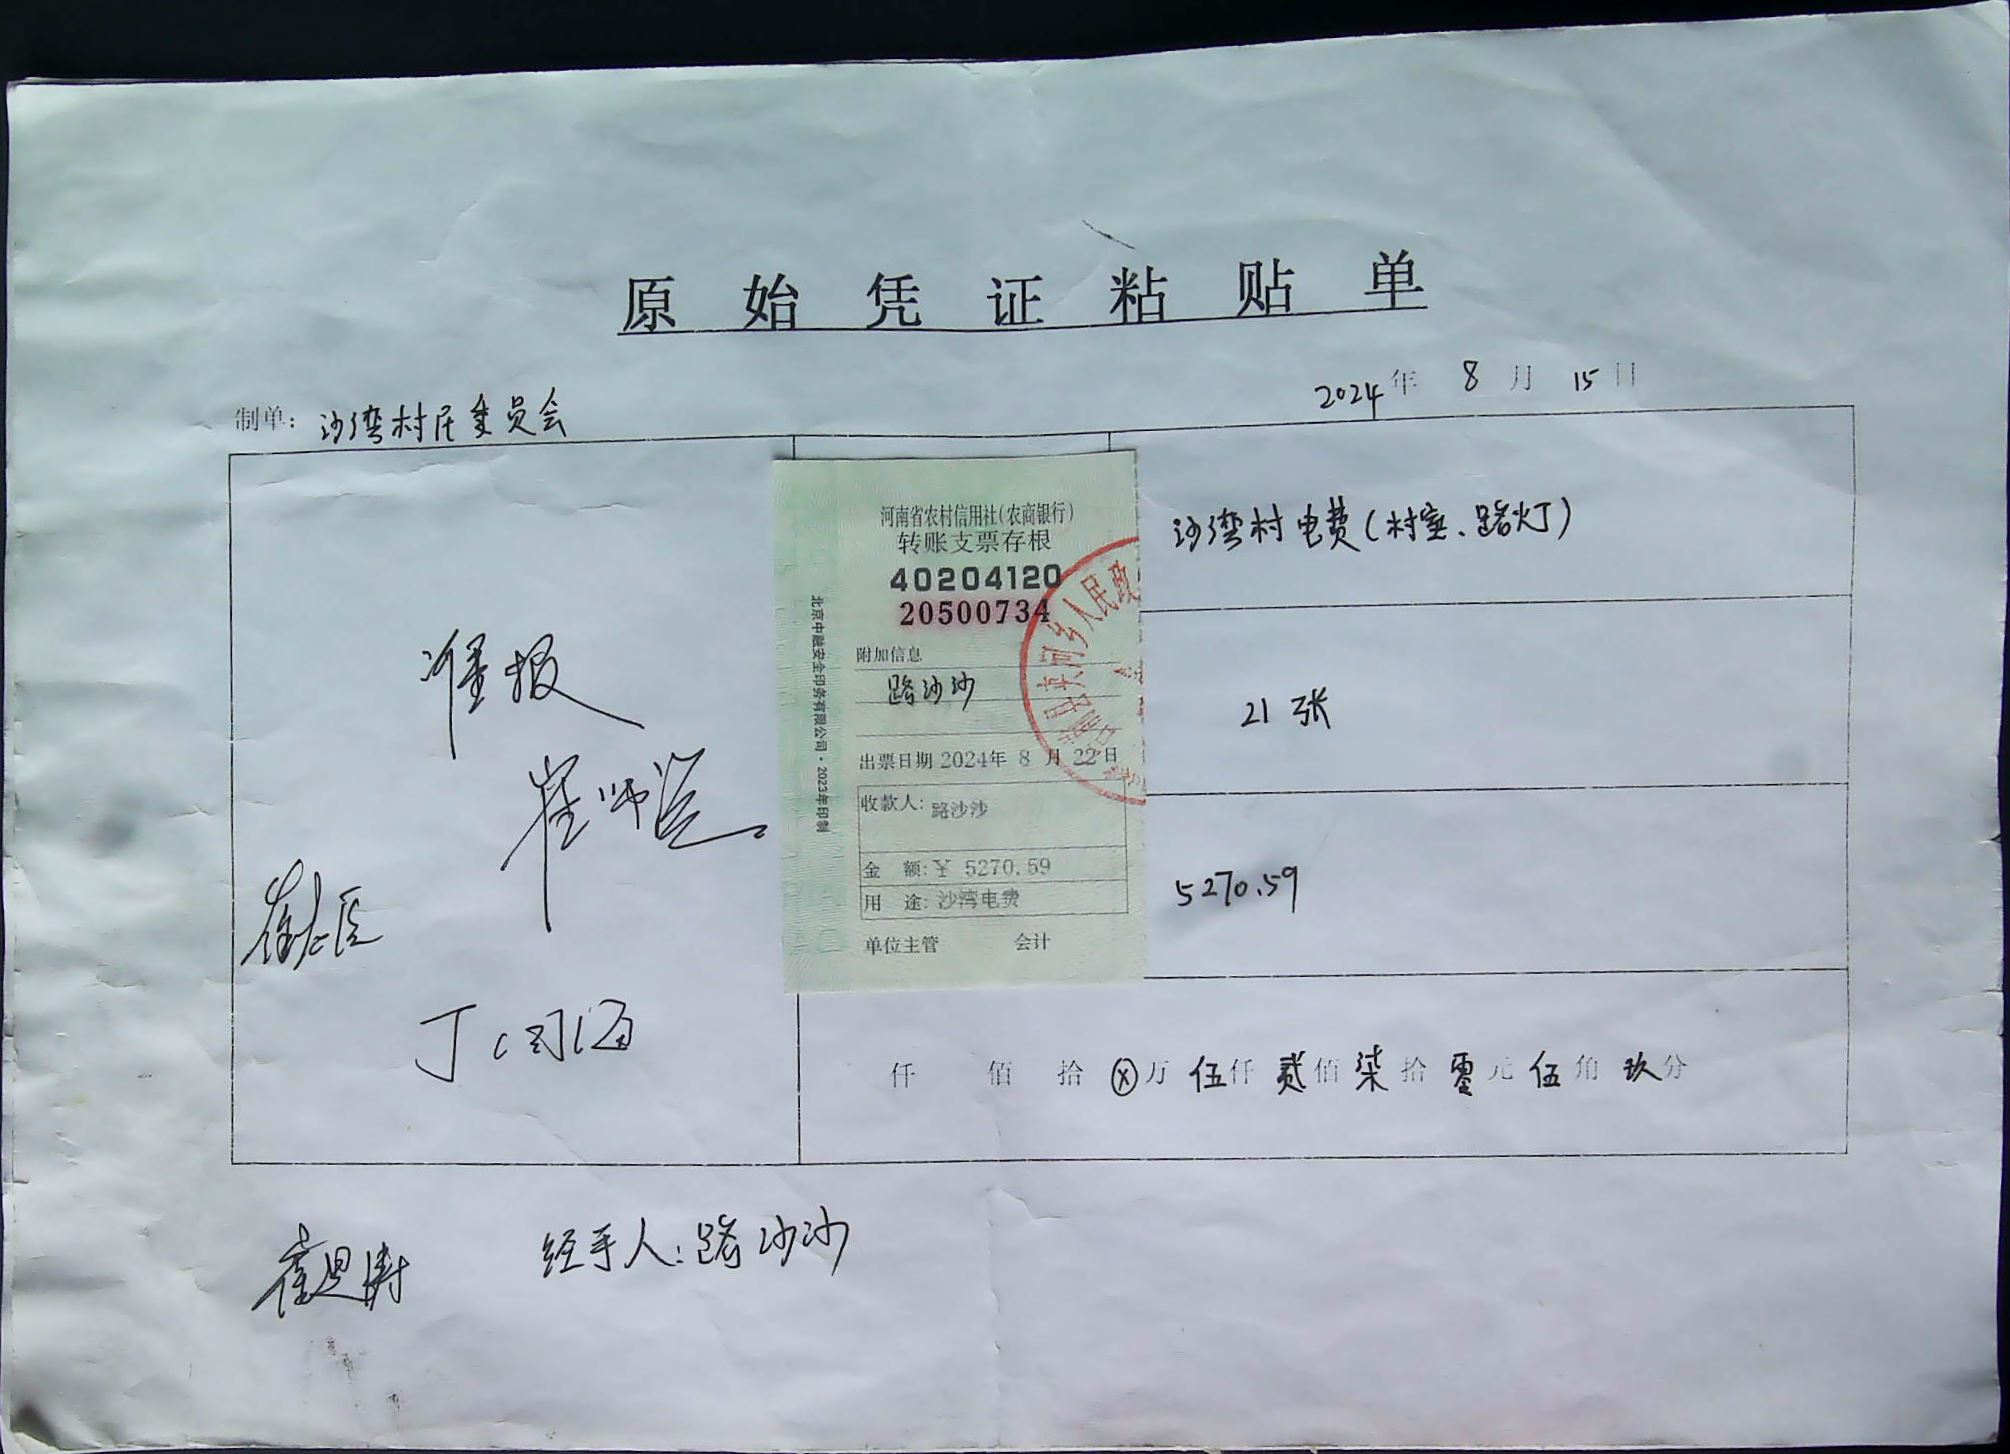 原始凭证粘贴单
制单：沙湾村民委员会
2024年 8月 15日
准报
丁
河南省农村信用社（农商银行）
转账支票存根
40204120
20500734
附加信息
路沙沙
出票日期 2024年 8月 22日
收款人：路沙沙
金 额：￥ 5270.59
用 途：沙湾电费
单位主管 会计
北京中融安全印务有限公司·2023年印制
乡人民政
沙湾村电费（村室、路灯）
21张
5270.59
仟 佰 拾 ⓧ万 伍仟 贰佰 柒拾 零元 伍角 玖分
经手人：路沙沙